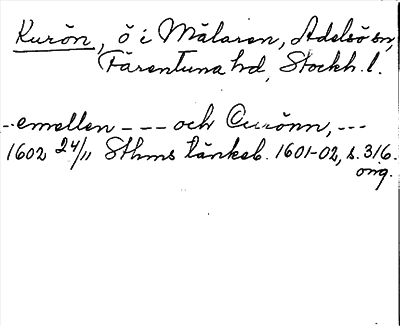 Kurön, ö i Mälaren, Adelsö sn,
Färentuna hd, Stockh. l.
--emellen --- och Curönn, ---
1602 24/11 Sthms tänkeb. 1601-02, s. 316.
orig.